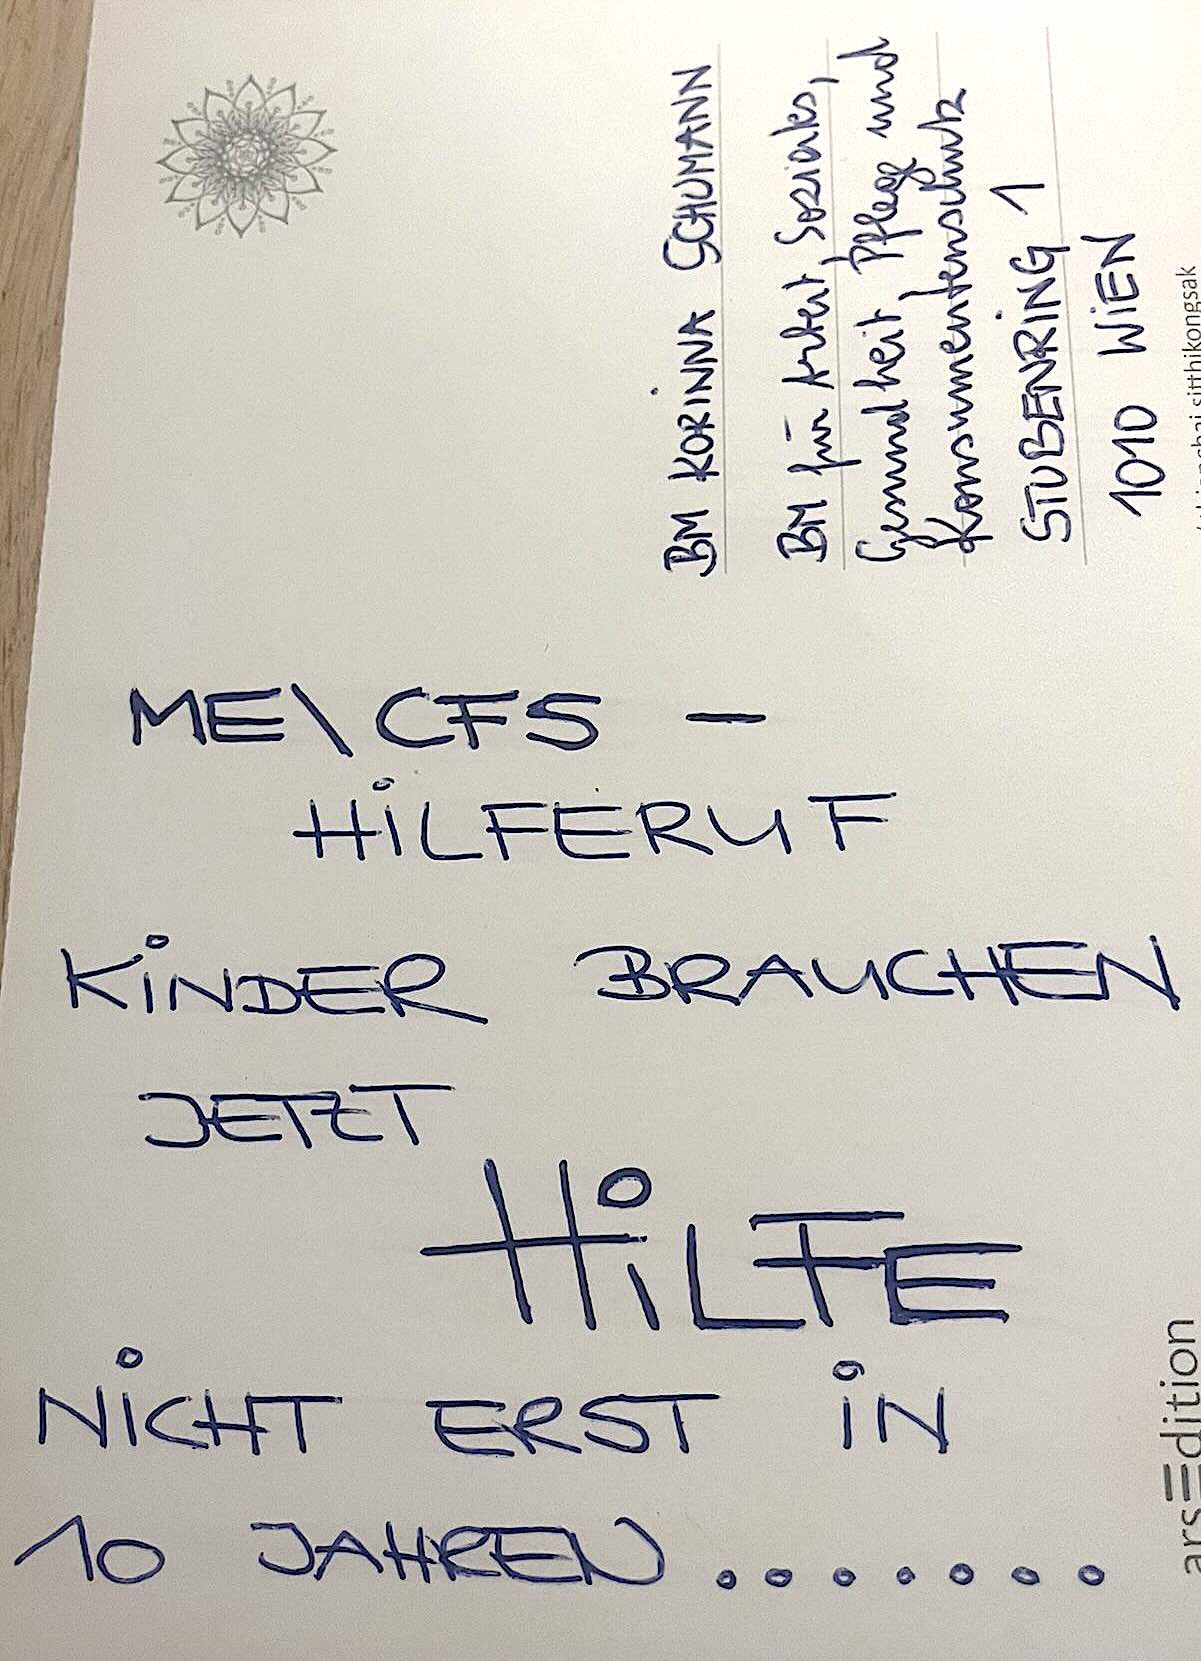 BM KORINNA SCHUMANN
BM für Arbeit, Soziales,
Gesundheit, Pflege und
Konsumentenschutz
STUBENRING 1
1010 WIEN
ME\CFS –
HILFERUF
KINDER BRAUCHEN
JETZT
HILFE
NICHT ERST IN
10 JAHREN.......
arsEdition
sitthikongsak